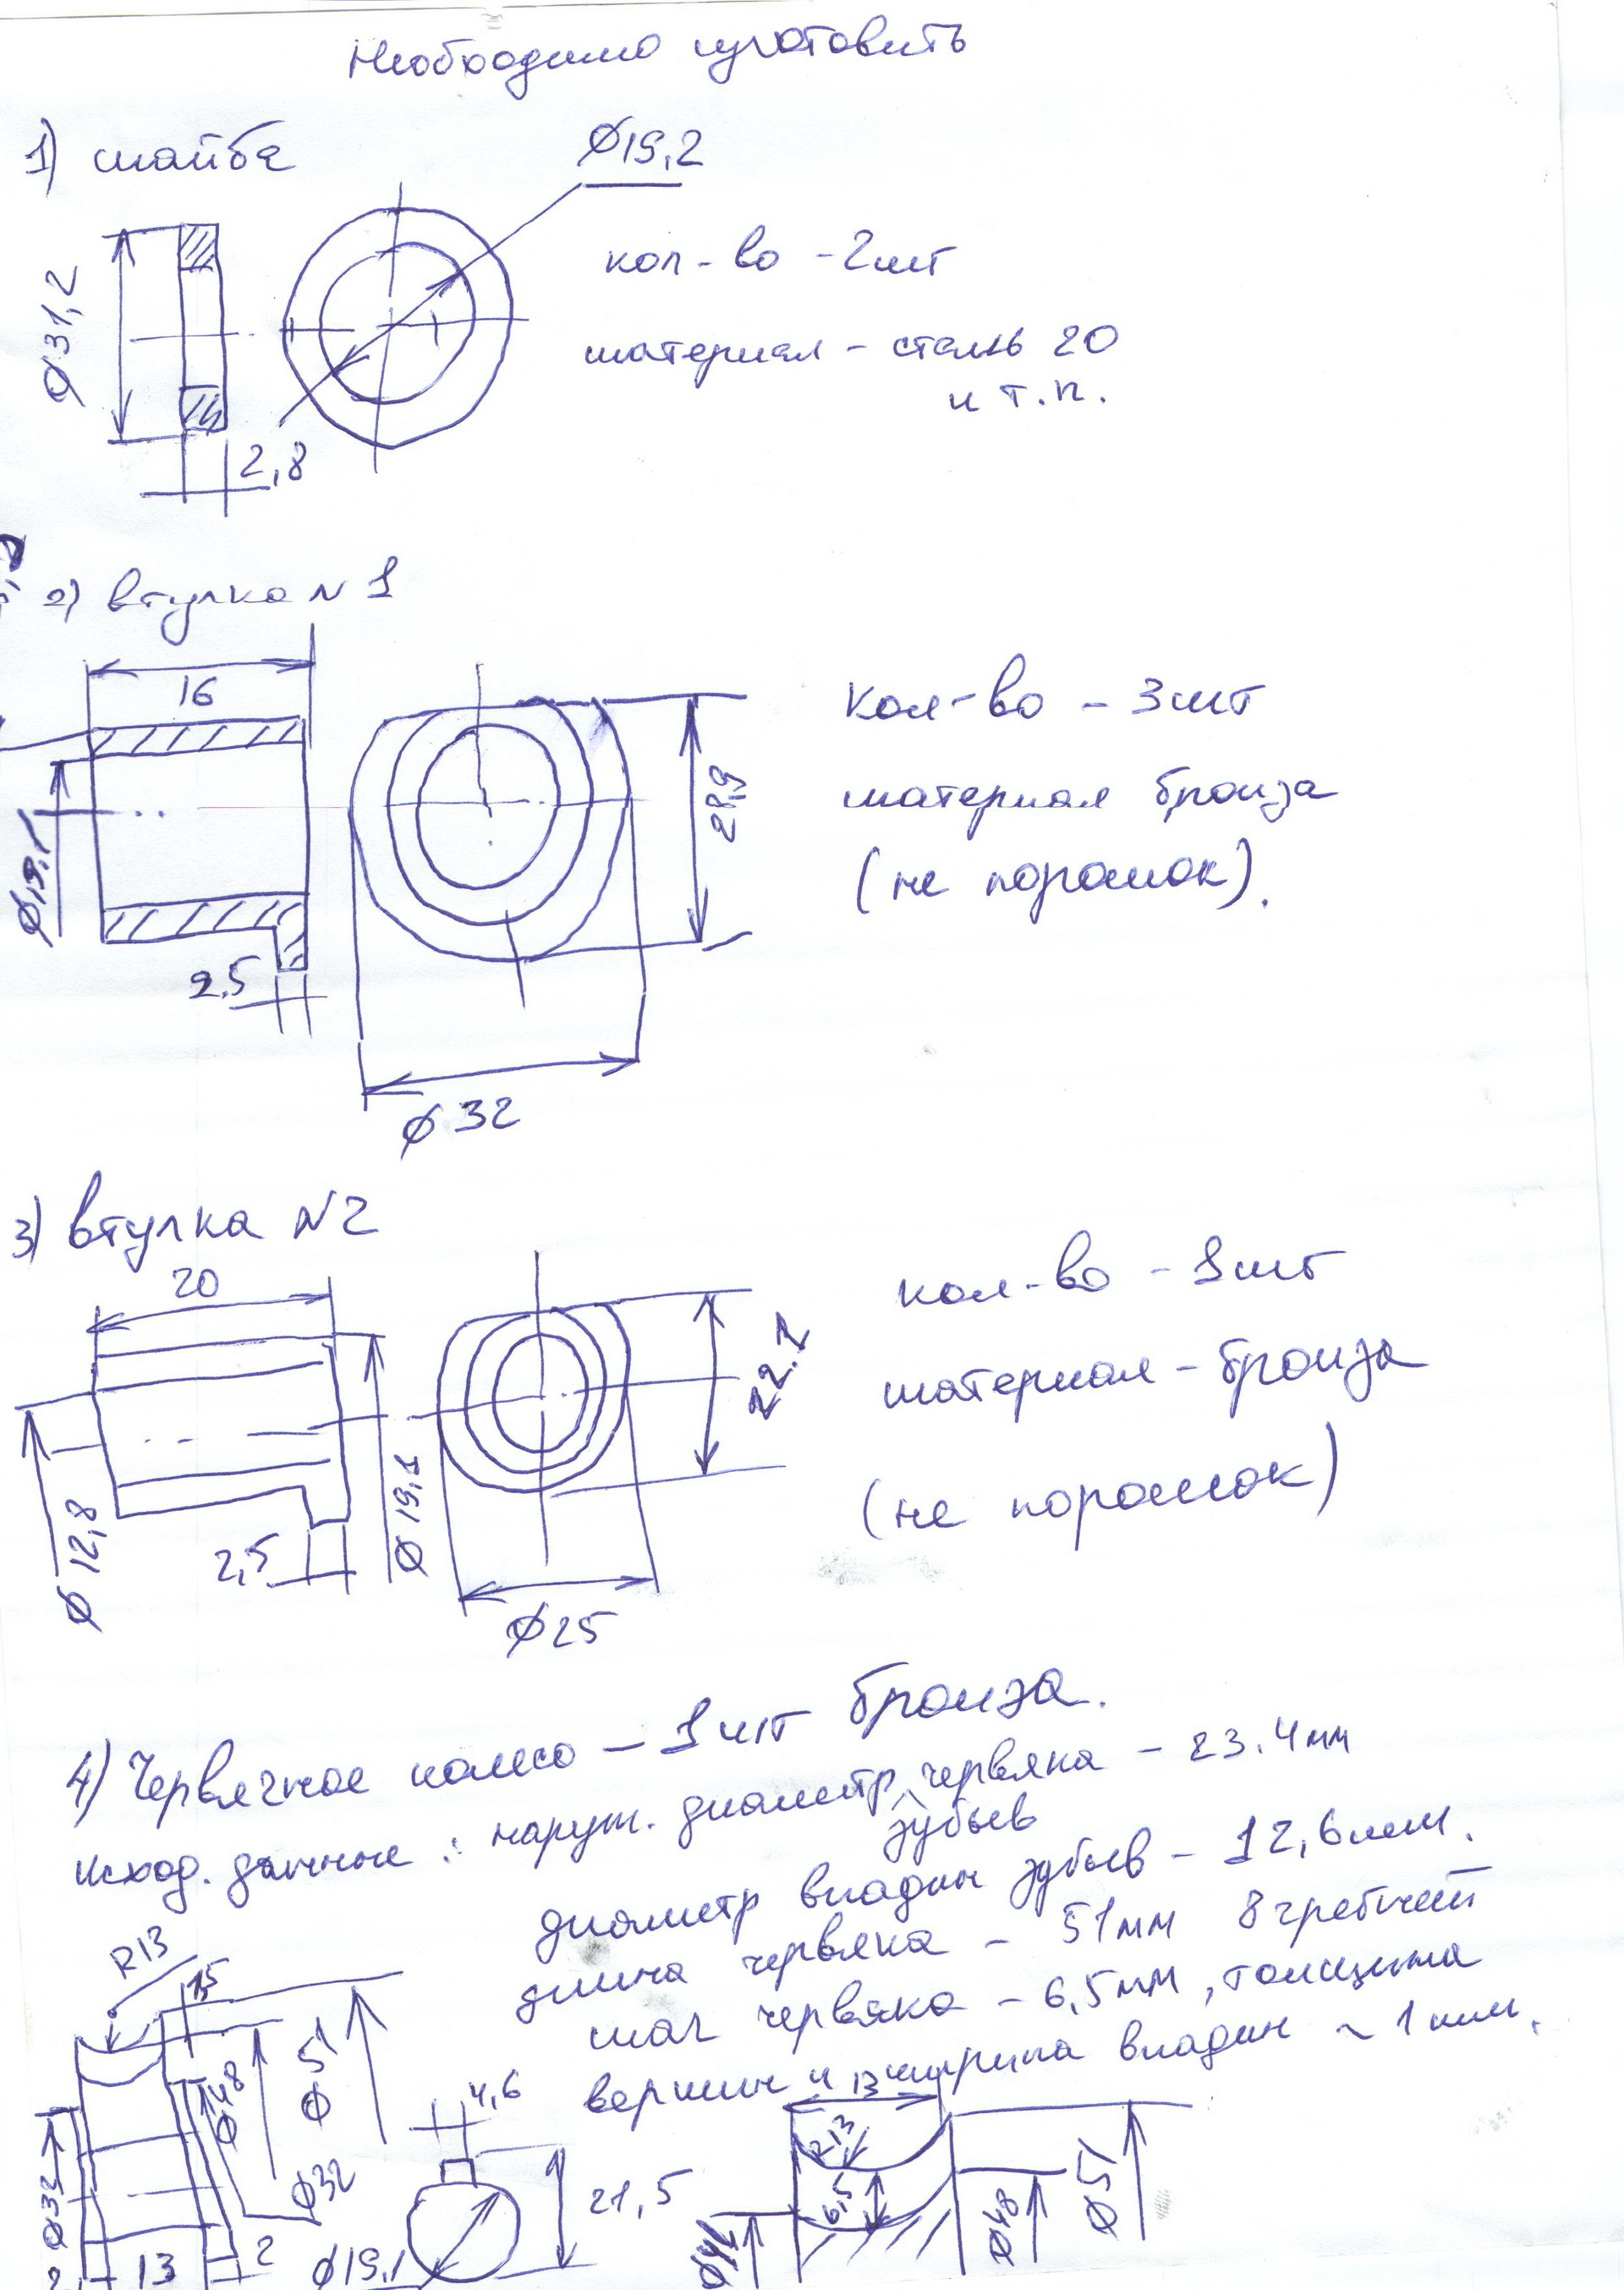 Необходимо изготовить
1) шайба
Ø19,2
Ø31,2
кол-во - 2шт
материал - сталь 20
и т.п.
2,8
2) втулка N 1
16
кол-во - 3шт
28,9
материал бронза
Ø19,1
(не порошок).
2,5
Ø32
3) втулка N2
20
кол-во - 1шт
22.2
материал - бронза
Ø12,8
Ø19,1
(не порошок)
2,5
Ø25
4) Червячное колесо - 1шт бронза.
исход. данные : наруж. диаметр червяка - 23.4мм
зубьев
диаметр впадин зубьев - 12,6мм.
длина червяка - 51мм 8 гребней
шаг червяка - 6,5мм, толщина
вершин и ширина впадин ~ 1мм.
R13
15
Ø48
Ø51
4,6
13
R13
6,5
Ø32
Ø32
21,5
Ø48
Ø51
13
2
Ø19,1